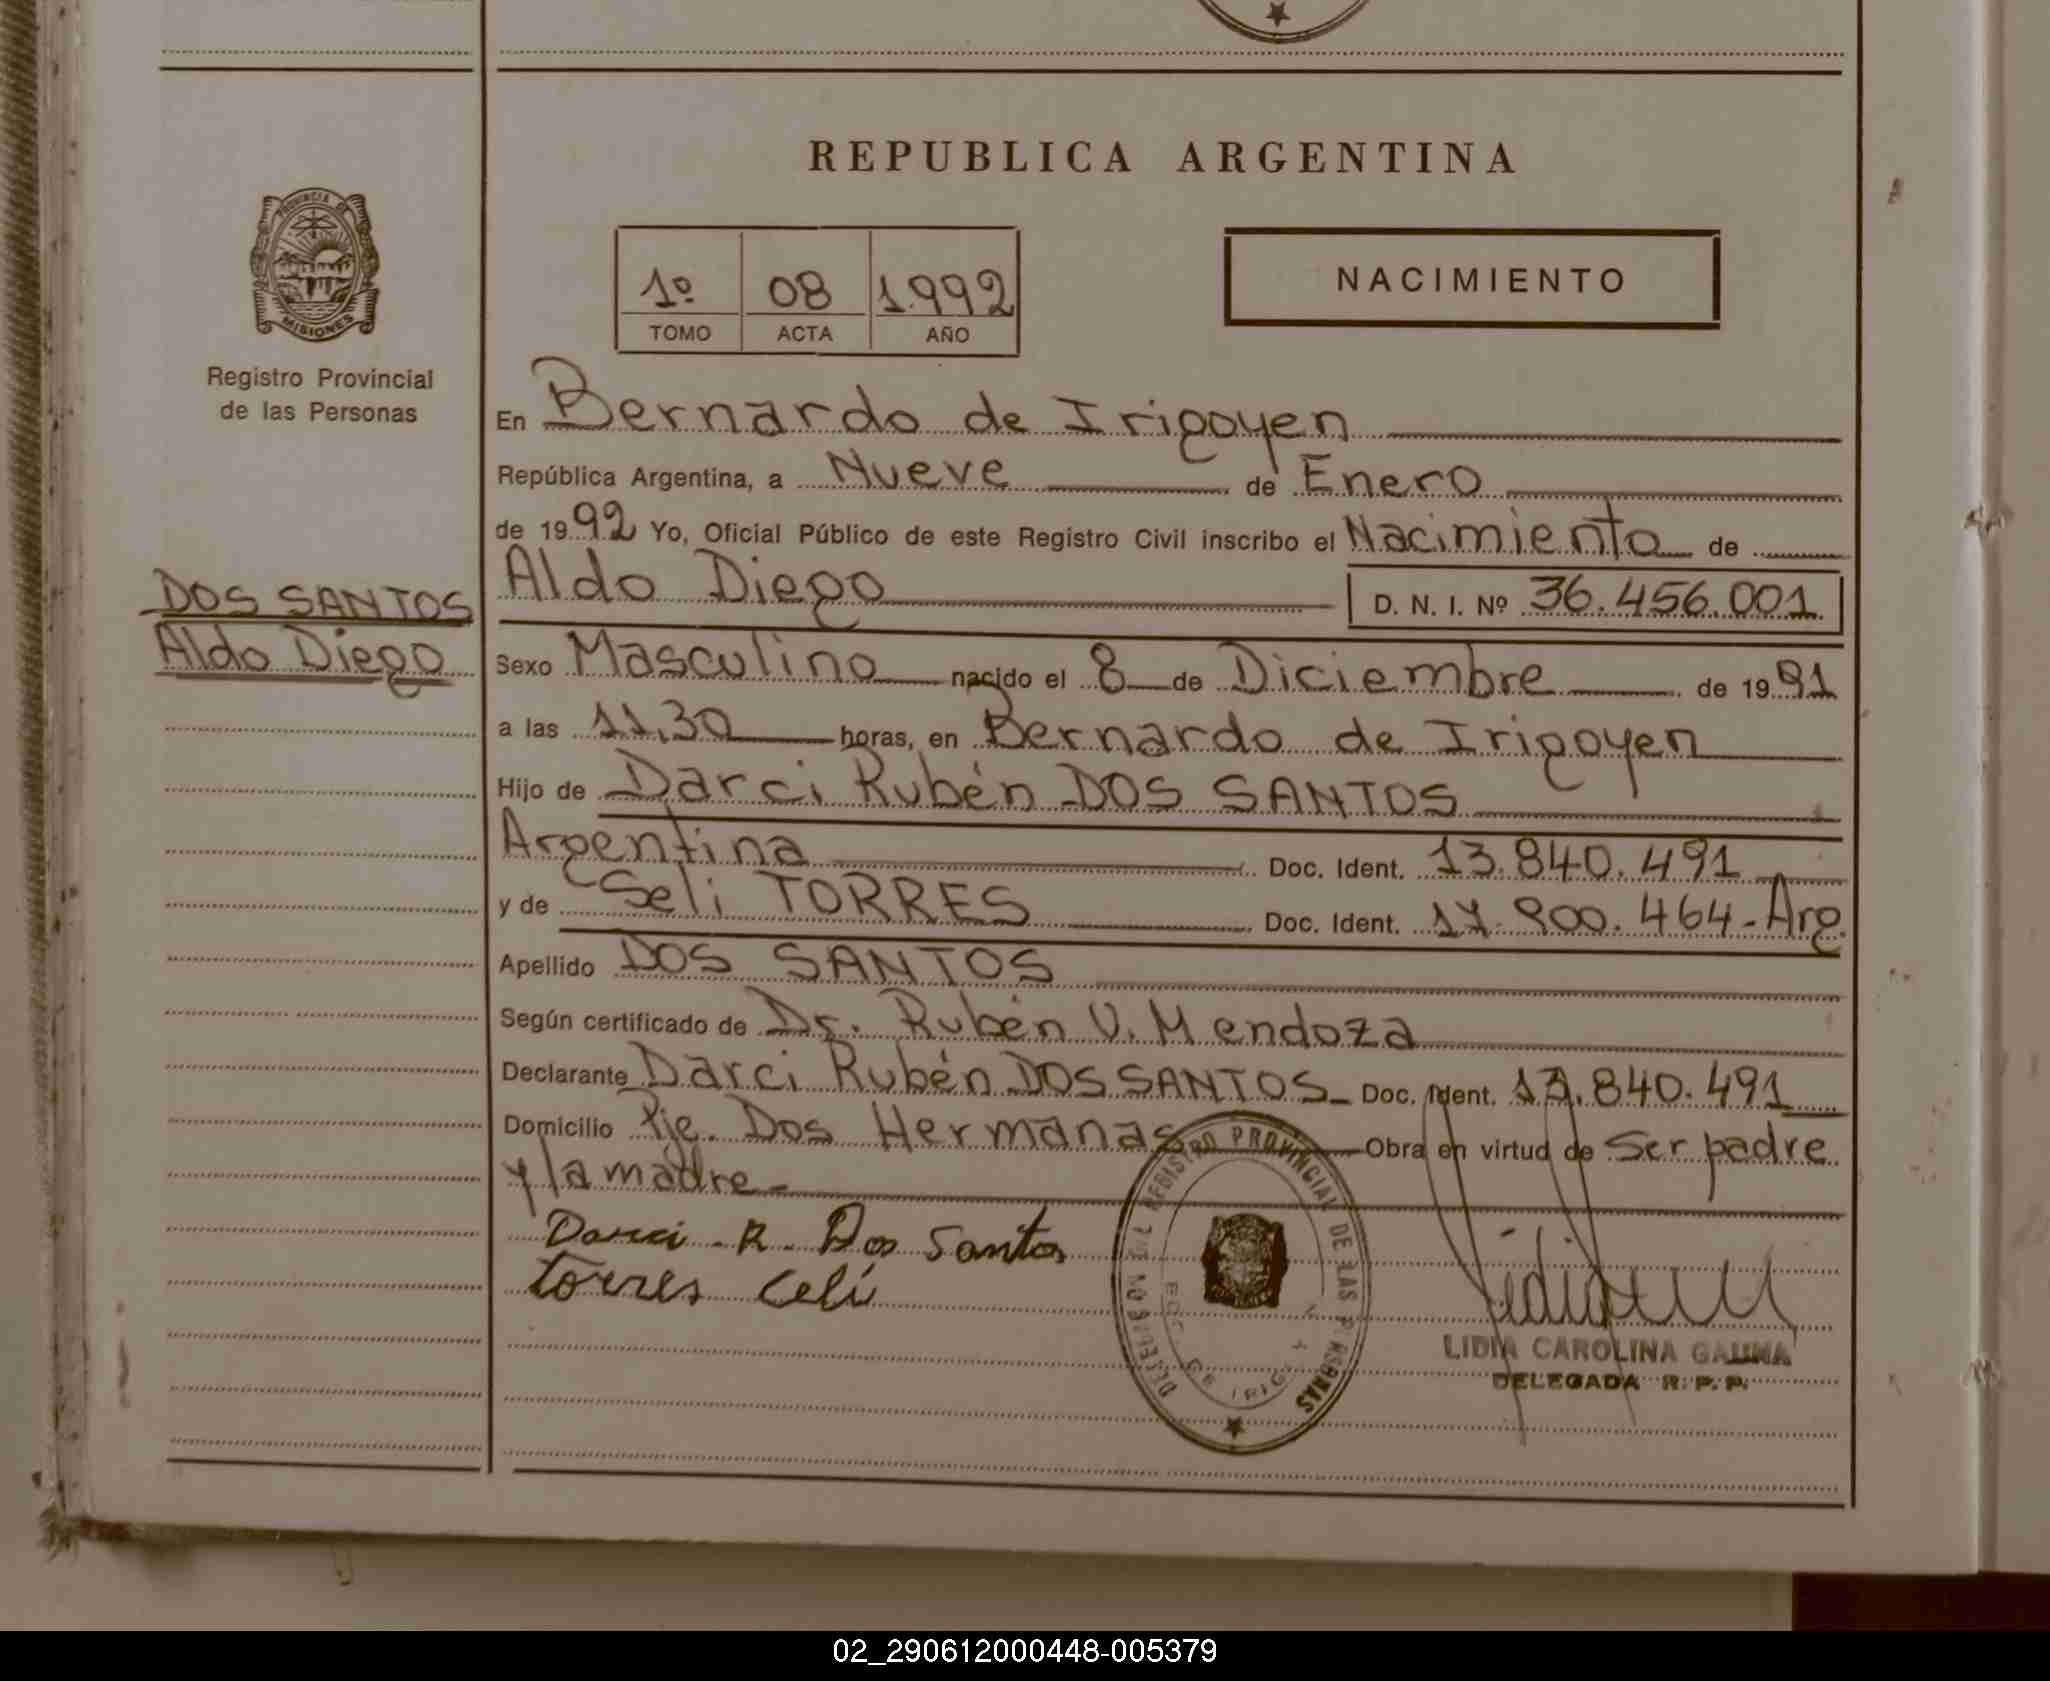 REPUBLICA ARGENTINA
PROVINCIA DE
MISIONES
Registro Provincial
de las Personas
1º 08 1992
TOMO ACTA AÑO
NACIMIENTO
En Bernardo de Irigoyen
República Argentina, a Nueve de Enero
de 1992 Yo, Oficial Público de este Registro Civil inscribo el Nacimiento de
DOS SANTOS
Aldo Diego
Aldo Diego D. N. I. Nº 36.456.001
Sexo Masculino nacido el 8 de Diciembre de 1991
a las 11,30 horas, en Bernardo de Irigoyen
Hijo de Darci Rubén DOS SANTOS
Argentina Doc. Ident. 13.840.491
y de Seli TORRES Doc. Ident. 17.900.464-Arg
Apellido DOS SANTOS
Según certificado de Dr. Rubén V. Mendoza
Declarante Darci Rubén DOS SANTOS Doc. Ident. 13.840.491
Domicilio Pje. Dos Hermanas Obra en virtud de Ser padre
y la madre
Darci R. Dos Santos
Torres Celi
REGISTRO PROVINCIAL DE LAS PERSONAS
LIDIA CAROLINA
DELEGADA R. P. P.
02_290612000448-005379